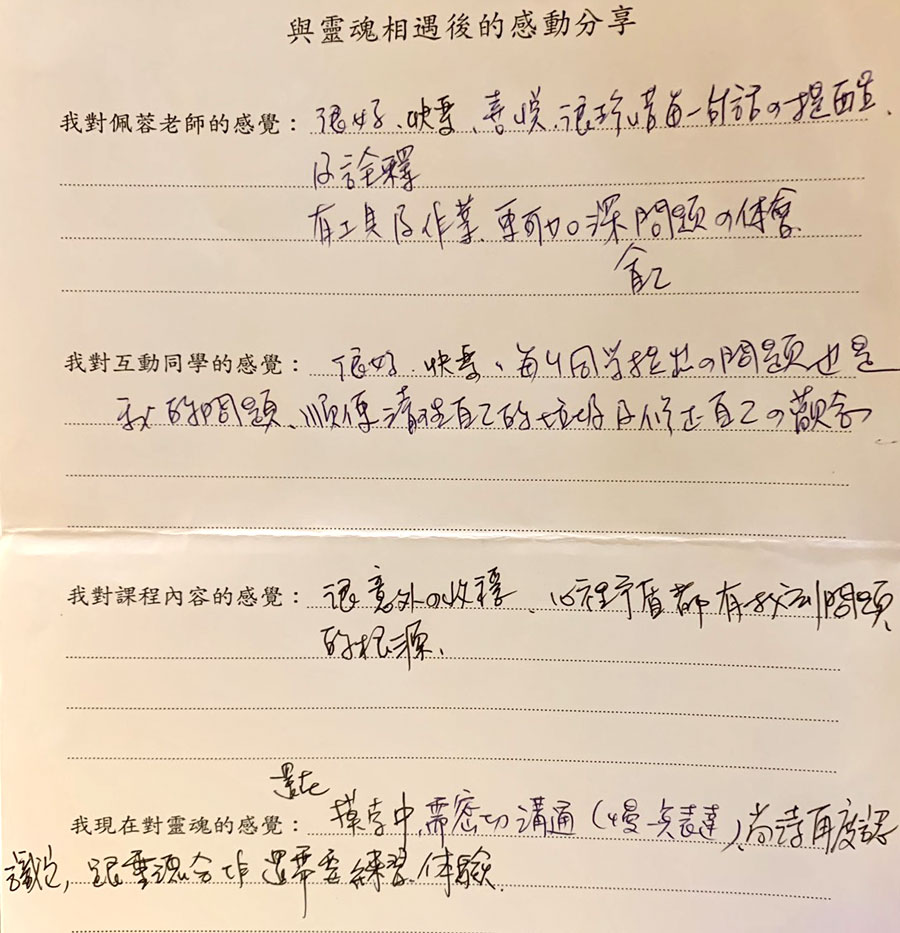 與靈魂相遇後的感動分享
我對佩蓉老師的感覺：很好、快樂、喜悅、很珍惜每一句話の提醒、
及詮釋
有工具及作業、更可加深問題の体會
我對互動同學的感覺：很好、快樂、每個同学提出の問題也是
我的問題、順便清理自己的垃圾及修正自己の觀念
我對課程內容的感覺：很意外の收穫、心裡矛盾都有找到問題
的根源、
還在
我現在對靈魂的感覺：摸索中、需密切溝通（慢点表達）、尚待再度認
識它，跟靈魂合作還需要練習、体驗、